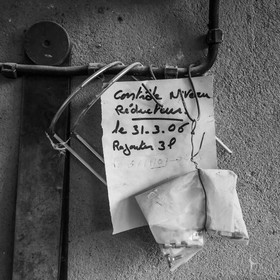 Contrôle Niveau
Réducteur.
le 31.3.06
Rajouter 3l